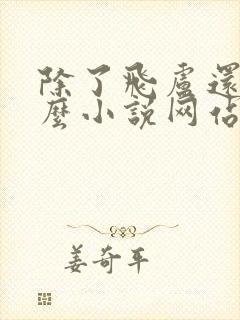 除了飛盧還
麼小說网佔
姜奇平